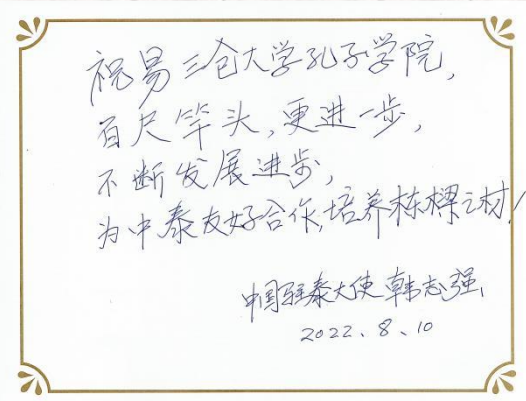 祝易三仓大学孔子学院,
百尺竿头,更进一步,
不断发展进步,
为中泰友好合作,培养栋樑之材!
中国驻泰大使 韩志强
2022、8、10